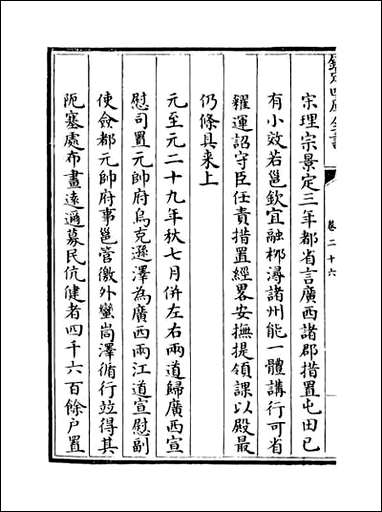 欽定四庫全書
卷二十六
宋理宗景定三年都省言廣西諸郡措置屯田已
有小效若邕欽宜融柳潯諸州能一體講行可省
糴運詔守臣任責措置經畧安撫提領課以殿最
仍條具來上
元至元二十九年秋七月併左右兩道歸廣西宣
慰司置元帥府烏克遜澤為廣西兩江道宣慰副
使僉都元帥府事邕管徼外蠻峝澤循行竝得其
阨塞處布畫逺邇募民伉健者四千六百餘户置